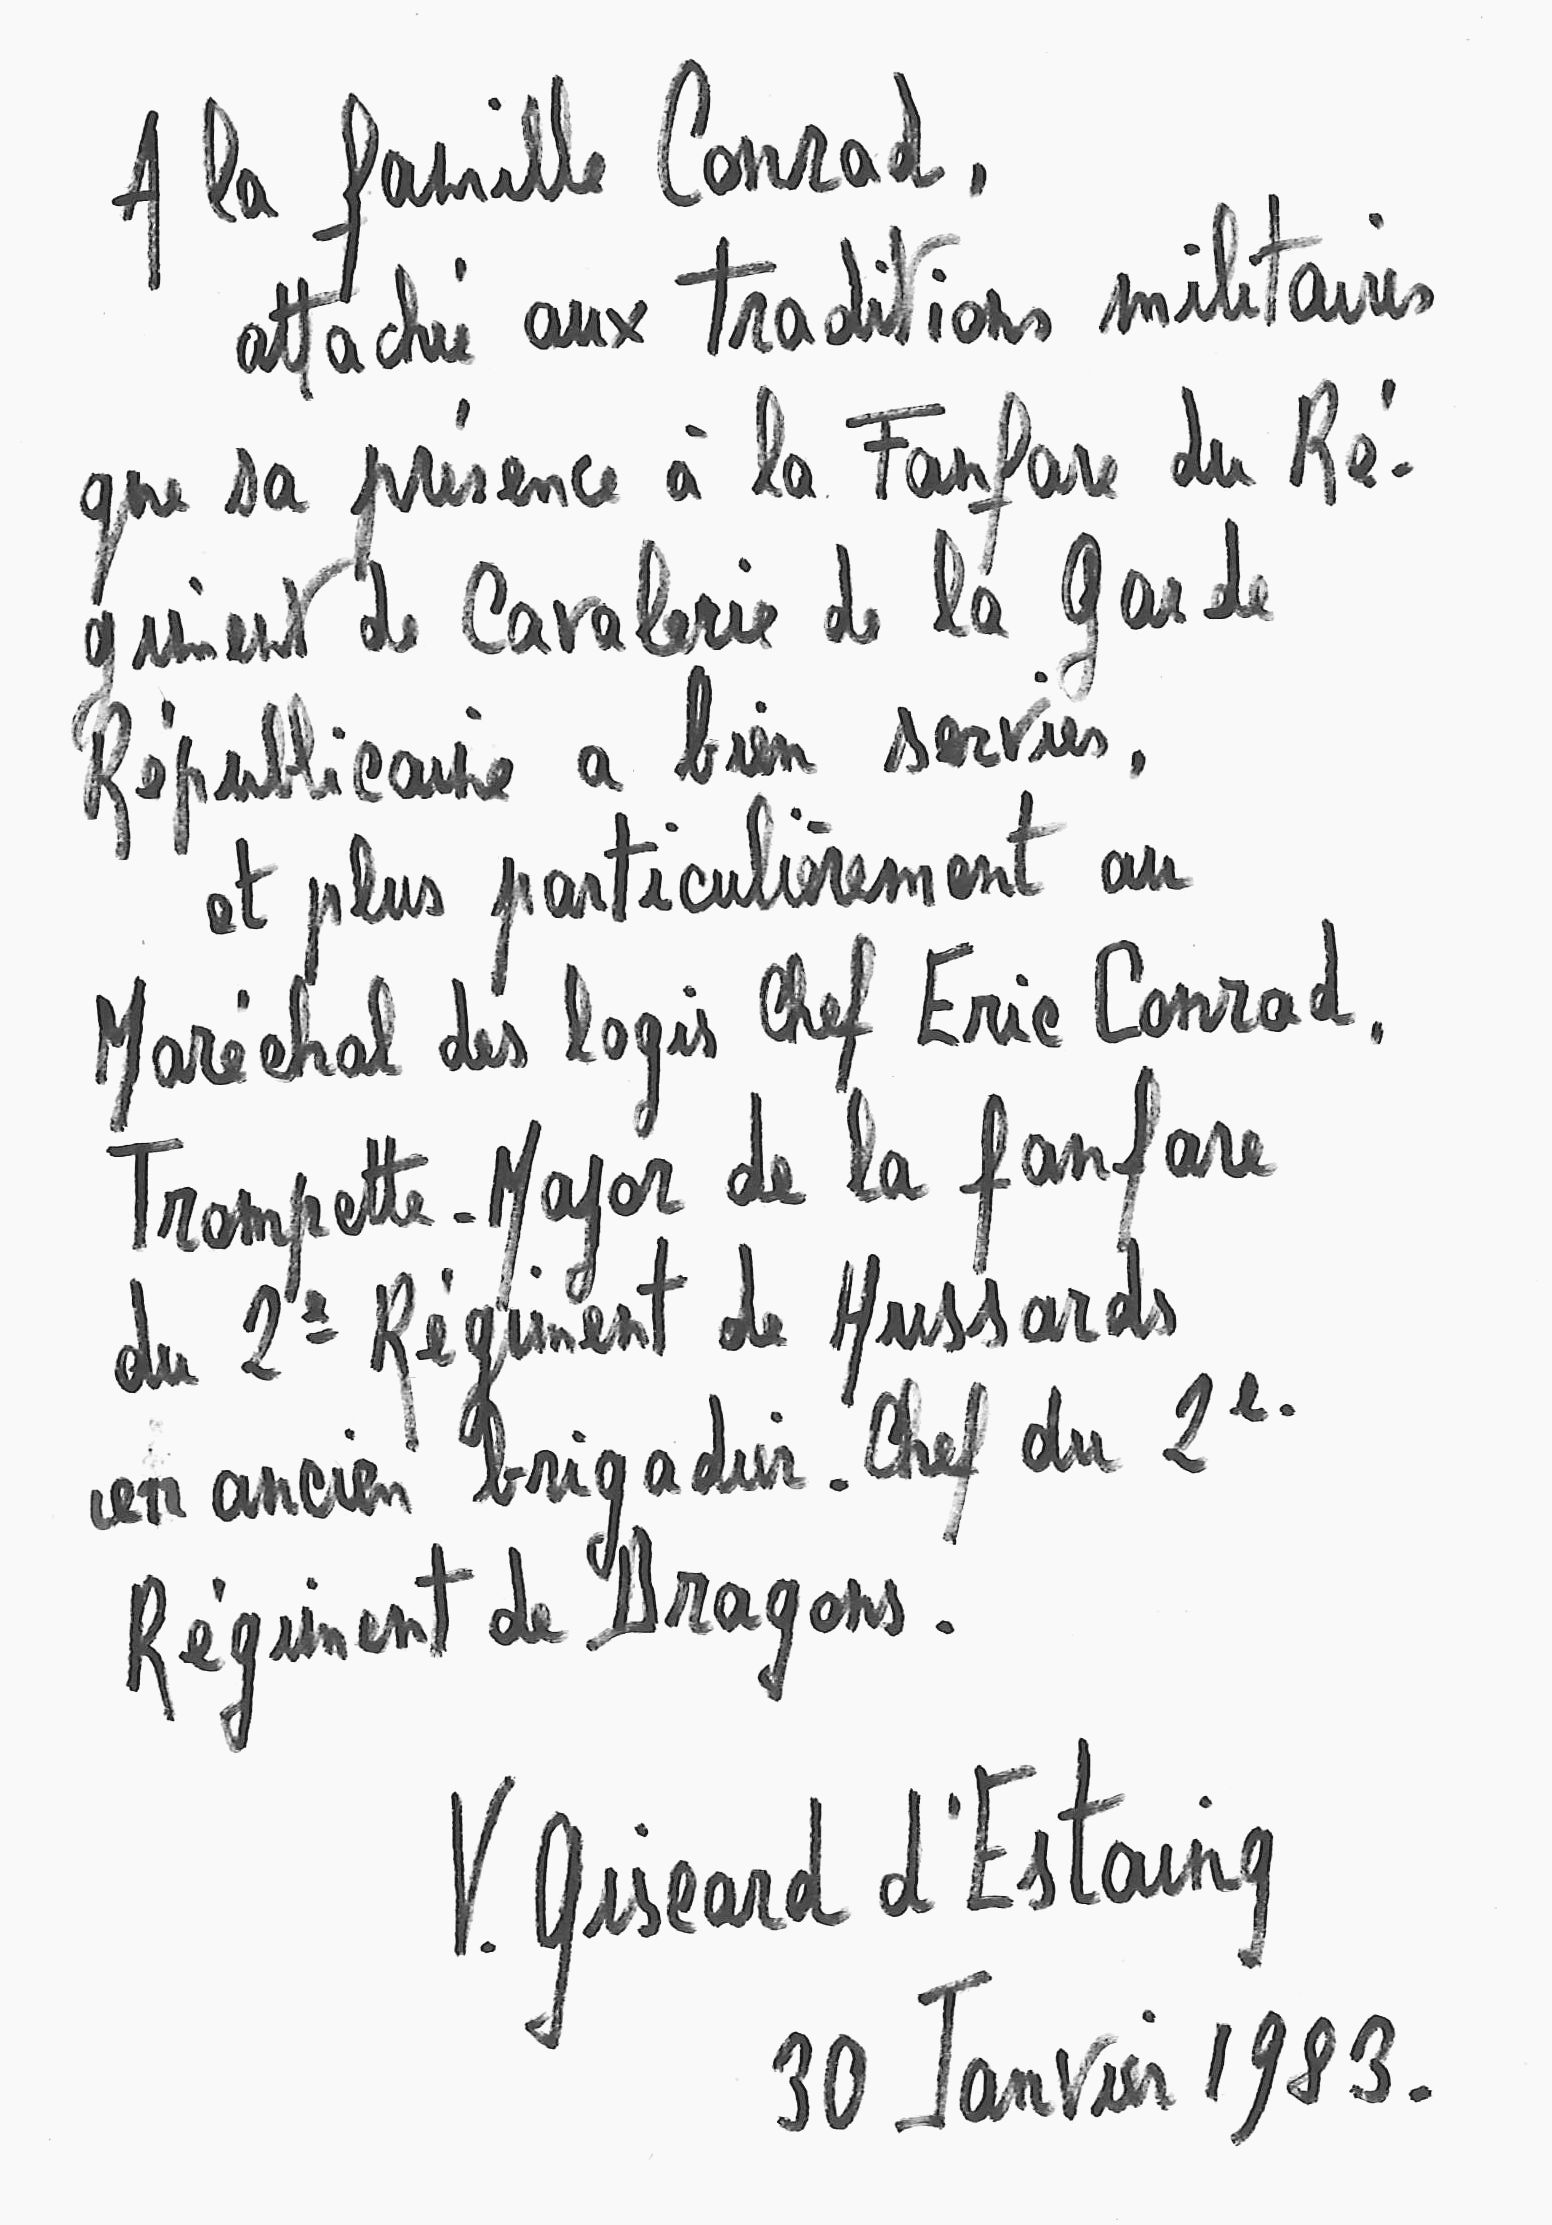 A la famille Conrad,
attachée aux traditions militaires
que sa présence à la Fanfare du Ré-
giment de Cavalerie de la Garde
Républicaine a bien servies,
et plus particulièrement au
Maréchal des logis Chef Eric Conrad,
Trompette-Major de la fanfare
du 2e Régiment de Hussards
un ancien brigadier-Chef du 2e.
Régiment de Dragons.
V. Giscard d'Estaing
30 Janvier 1983.